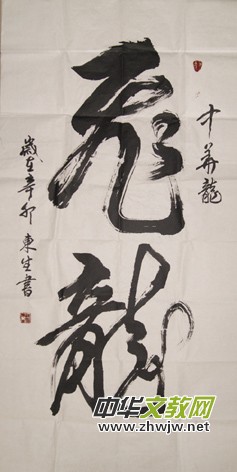 才華龍
飛龍
歲在辛卯 東生書
中华文教网
www.zhwjw.net